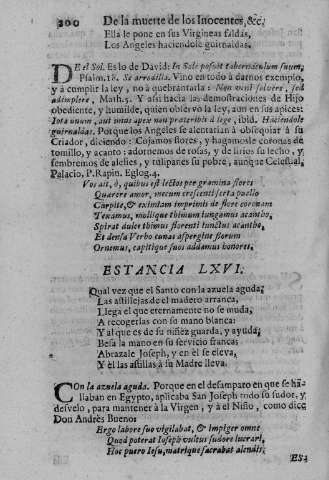 200 De la muerte de los Inocentes, &c.
Ella le pone en sus Virgineas faldas,
Los Angeles haciendole guirnaldas.
DEl Sol. Es lo de David: In Sole posuit tabernaculum suum,
Psalm. 18. Se arrodilla. Vino en todo à darnos exemplo,
y à cumplir la ley, no à quebrantarla: Non veni solvere, sed
adimplere, Math. 5. Y assi hacia las demostraciones de Hijo
obediente, y humilde, quien observò la ley, aun en las apices:
Iota unum, aut unus apex non præteribit à lege, ibid. Haciendole
guirnaldas. Porque los Angeles se alentarian à obsequiar à su
Criador, diciendo: Cojamos flores, y hagamosle coronas de
tomillo, y acanto: adornemos de rosas, y de lirios su lecho, y
sembremos de alelies, y tulipanes su pobre, aunque Celestial,
Palacio. P. Rapin. Eglog. 4.
Vos ait, ò, quibus est lectos per gramina flores
Quærere amor, mecum crescenti serta puello
Carpite, & eximiam imprimis de flore coronam
Texamus, mollique thimum iungamus acantho,
Spirat dulce thimus florenti iunctus acantho.
Et densa Verbo cunas aspergine florum
Ornemus, capitique suos addamus honores.
ESTANCIA LXVI.
Qual vez que el Santo con la azuela aguda;
Las astillejas de el madero arranca,
Llega el que eternamente no se muda,
A recogerlas con su mano blanca:
Y al que es de su niñez guarda, y ayuda,
Besa la mano en su servicio franca:
Abrazale Joseph, y en èl se eleva,
Y èl las astillas à su Madre lleva.
COn la azuela aguda. Porque en el desamparo en que se ha-
llaban en Egypto, aplicaba San Joseph todo su sudor, y
desvelo, para mantener à la Virgen, y à el Niño, como dice
Don Andrès Bueno:
Ergo labore suo vigilabat, & impiger omne
Quod poterat Ioseph vultus sudore lucrari,
Hoc puero Iesu, matrique sacrabat alendis;
ES-